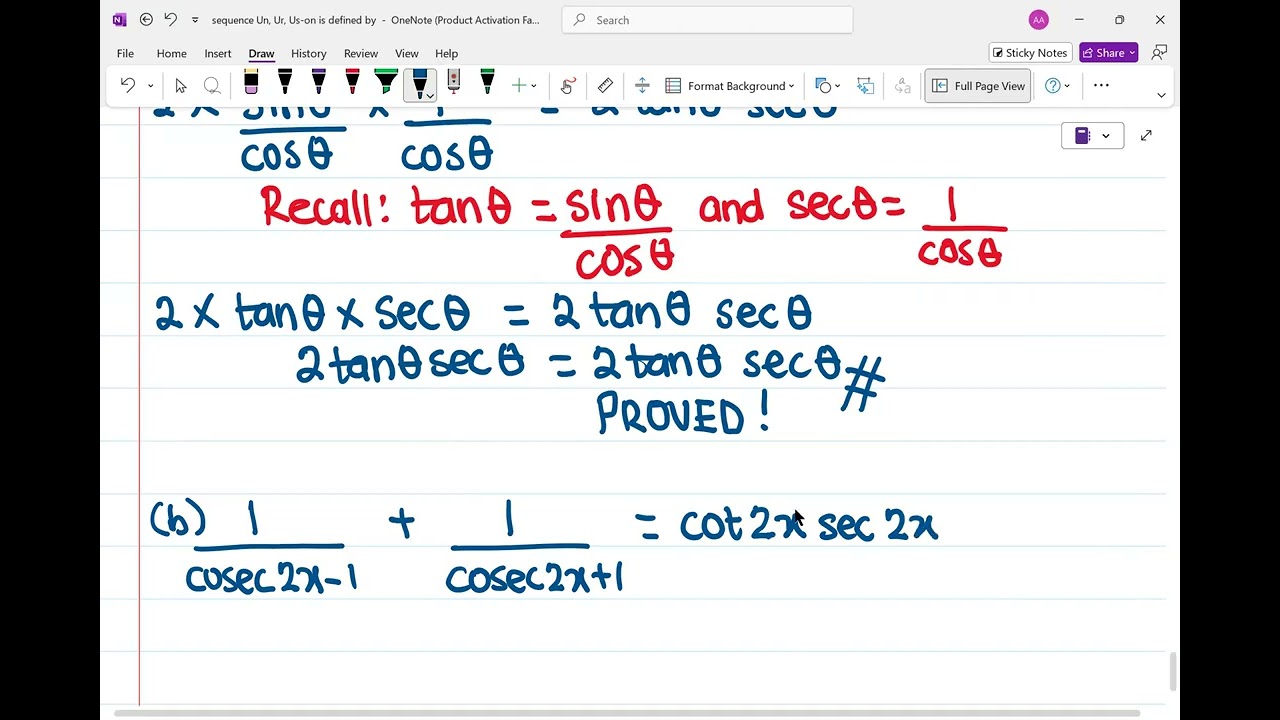 sequence Un, Ur, Us-on is defined by - OneNote (Product Activation Fa...
Search
AA
File Home Insert Draw History Review View Help
Sticky Notes
Share
Format Background
Full Page View
2 × sinθ/cosθ × 1/cosθ = 2 tanθ secθ
Recall: tanθ = sinθ/cosθ and secθ = 1/cosθ
2 × tanθ × secθ = 2 tanθ secθ
2tanθsecθ = 2tanθ secθ #
PROVED!
(b) 1/cosec2x-1 + 1/cosec2x+1 = cot2x sec2x